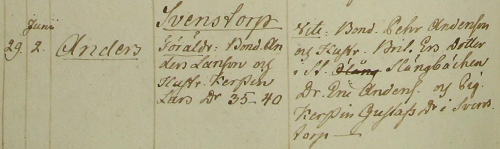 Junii
29. 2. Anders
Svenstorp
Föräldr: Bond. An
ders Larson og
Hustr. Kerstin
Lars Dr 35-40
Vitt: Bond. Pehr Anderson
og Hustr. Brit. Ers Dotter
i St. Slångbäcken
Dr. Eric Anders. og Pig.
Kerstin Gustafs Dr i Svens
torp